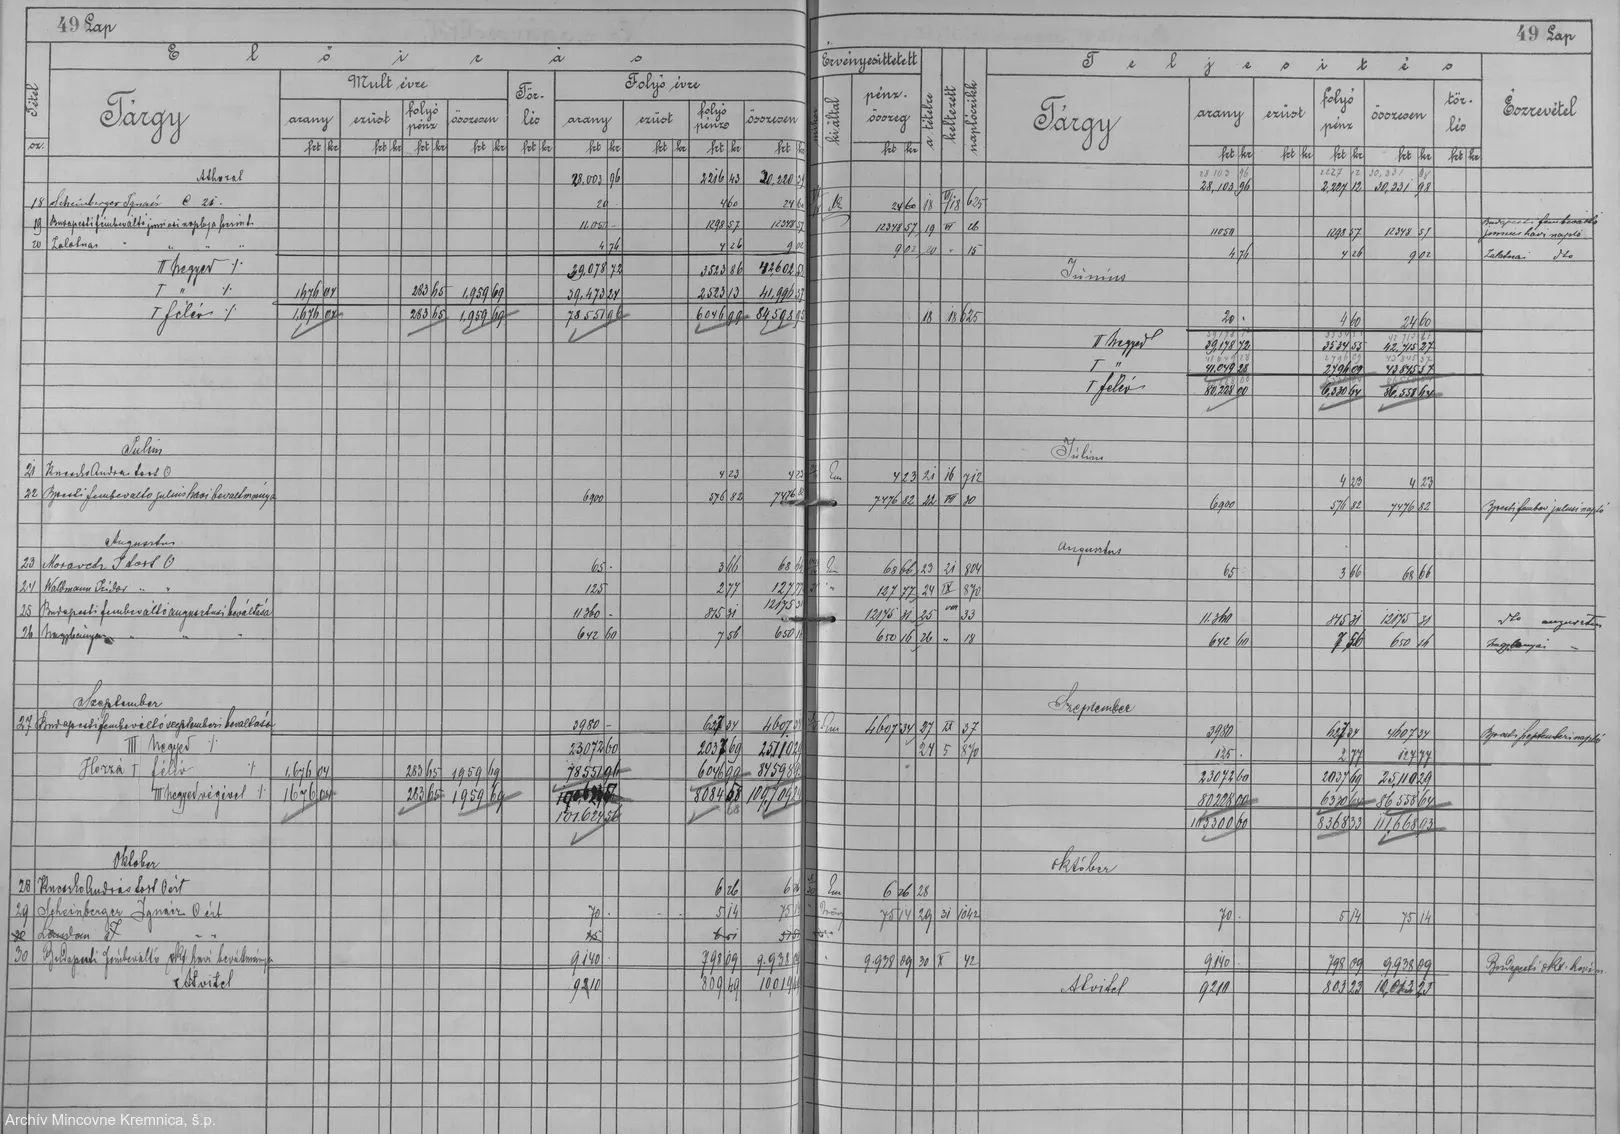 49 Lap
Előirás
Tétel
sz.
Tárgy
Mult évre
arany ezüst folyó pénz összesen
frt kr frt kr frt kr frt kr
Tör-lés
frt kr
Folyó évre
arany ezüst folyó pénz összesen
frt kr frt kr frt kr frt kr
Áthozat 28.003 96 2216 43 30,220 39
18 Scheinberger Ignácz 20 - 4 60 24 60
19 Budapesti fémbeváltó juniusi naplója szerint 11.050 - 1298 57 12348 57
20 Zalatnai " " " " 4 76 4 26 9 02
II Negyed 39.078 72 3523 86 42602 58
I " 1676 04 283 65 1.959 69 39.473 24 2523 13 41.996 37
I félév 1.676 04 283 65 1.959 69 78551 96 6046 99 84,598 95
Július
21 Knoszko András 4 23 4 23
22 Bpesti fémbeváltó julius havi beváltmánya 6900 576 82 7476 82
Augusztus
23 65 - 3 66 68 66
24 Waldmann Izidor " " 125 2 77 127 77
25 Budapesti fémbeváltó augusztusi beváltása 11360 - 815 31 12175 31
26 Nagybányai " " " 642 60 7 56 650 16
Szeptember
27 Budapesti fémbeváltó szeptemberi beváltása 3980 - 627 34 4607 34
III Negyed 23072 60 2037 69 25110 29
Hozzá I félév 1.676 04 283 65 1959 69 78551 96 6046 99 84598 95
III Negyed végével 1676 04 283 65 1959 69 8084 68 109,709 24
101.624 56
Október
28 Knoszko András 6 26 6 26
29 Scheinberger Ignácz 70 - 5 14 75 14
30 Budapesti fémbeváltó okt. havi beváltmánya 9140 - 798 09 9.938 09
Átvitel 9210 809 49 10,019 49
49 Lap
Érvényesittetett
kiáltal
pénz-összeg
frt kr
a tételre
keltezett
naplóczikk
24 60 18 VI/18 625
12348 57 19 VI 26
9 02 20 " 15
18 18 625
4 23 21 16 712
7476 82 22 VII 30
68 66 23 21 804
127 77 24 IX 870
12175 31 25 VIII 33
650 16 26 " 18
4607 34 27 IX 37
24 5 870
6 26 28
75 14 29 31 1042
9.938 09 30 X 42
Teljesités
Tárgy
arany ezüst folyó pénz összesen tör-lés
frt kr frt kr frt kr frt kr frt kr
Észrevétel
28 103 96 2227 12 30,331 08
28,103 96 2,227 12 30,331 98
11050 1298 57 12348 57 Budapesti fémbeváltó juniushavi napló
4 76 4 26 9 02 Zalatnai dto
Június
20 - 4 60 24 60
II Negyed 39,178 72 3534 55 42,715 27
I " 41,049 28 2796 09 43845 37
I félév 80,228 00 6,330 64 86,558 64
Július
4 23 4 23
6900 576 82 7476 82 Bpesti fémbev juliusi napló
Augusztus
65 3 66 68 66
11.360 815 31 12175 31 dto augusztus
642 60 7 56 650 16 Nagybányai "
Szeptember
3980 627 34 4607 34 Bpesti szeptemberi napló
125 - 2 77 127 77
23072 60 2037 69 25,110 29
80228 00 6330 64 86558 64
103300 60 8368 33 111,668 93
Október
70 - 5 14 75 14
9140 - 798 09 9,938 09 Budapesti okt. havi
Átvitel 9210 803 23 10,013 23
Archív Mincovne Kremnica, š.p.